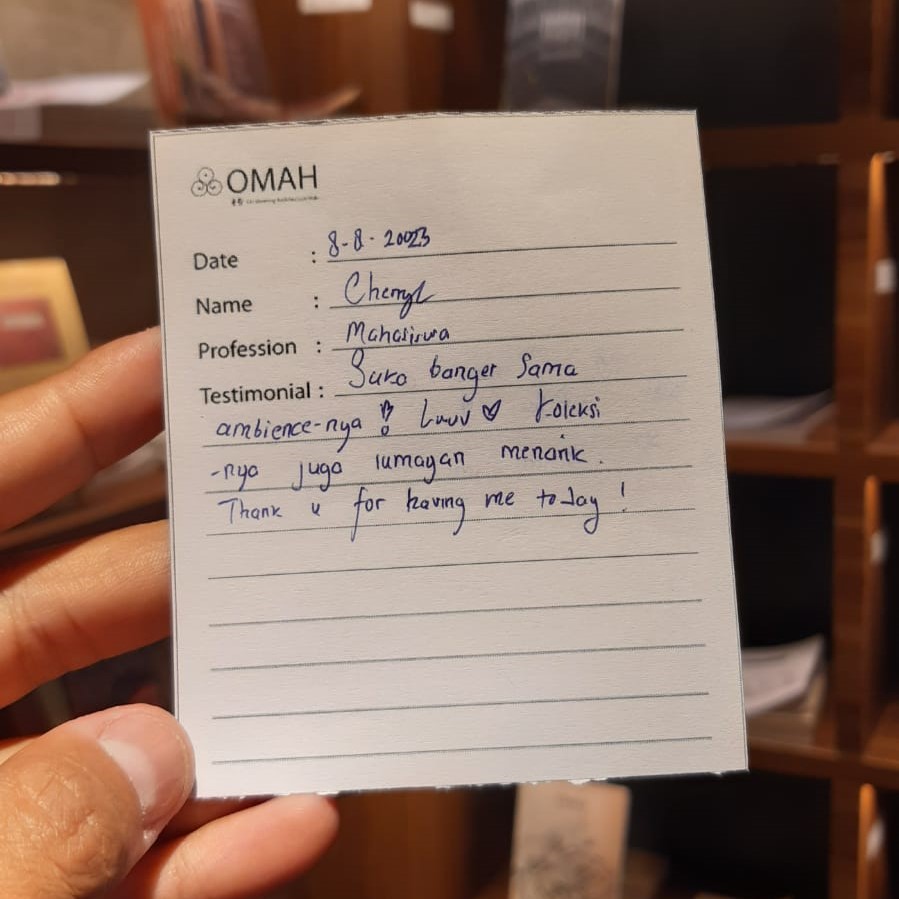 OMAH
Date : 8-8-20023
Name : Cheryl
Profession : Mahasiswa
Testimonial : Suka banget sama
ambience-nya !! Luvv ♡ Koleksi
-nya juga lumayan menarik.
Thank u for having me today!